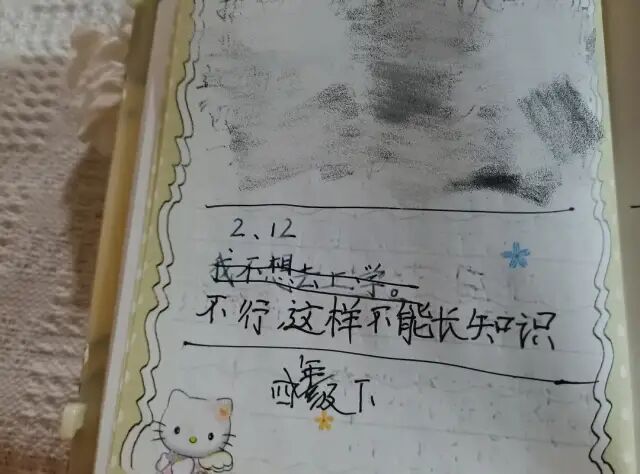 2、12
我不想去上学。
不行,这样不能长知识
四年级下